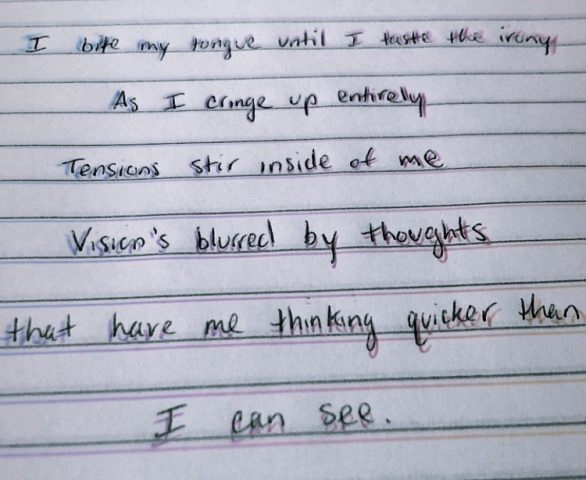 I bite my tongue until I taste the irony
As I cringe up entirely
Tensions stir inside of me
Vision's blurred by thoughts
that have me thinking quicker than
I can see.